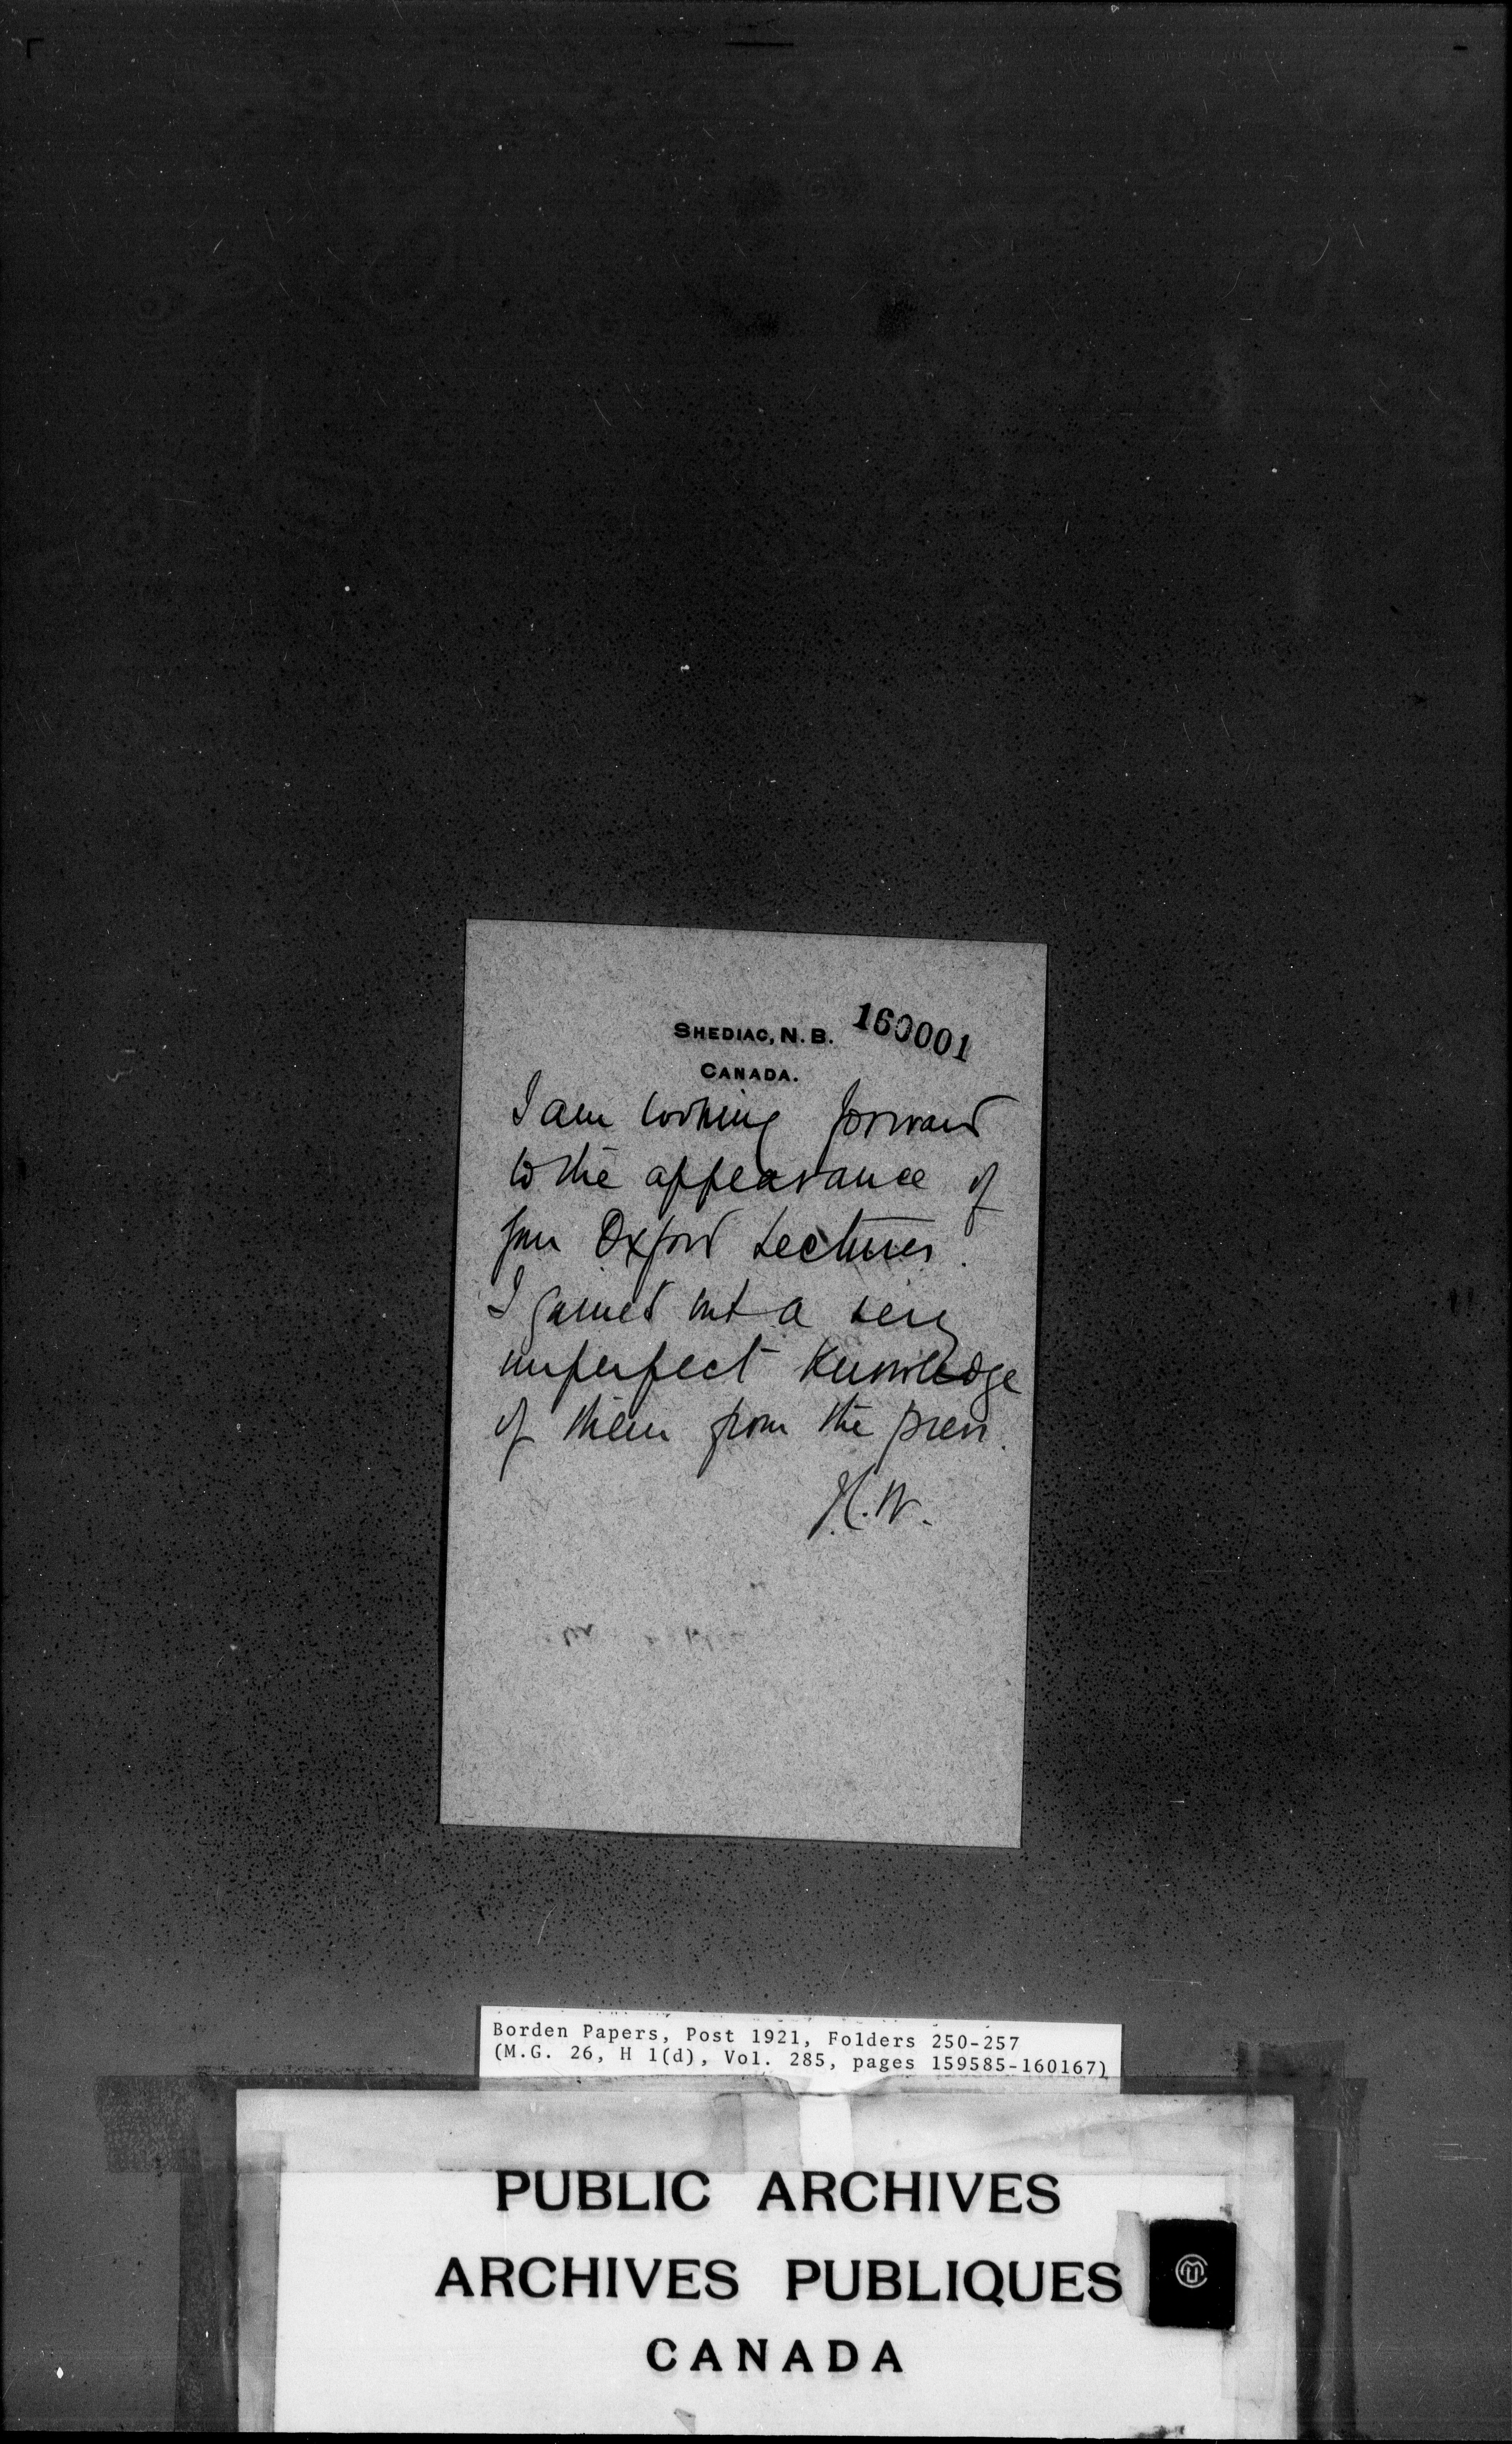 160001
SHEDIAC, N.B.
CANADA.
I am looking forward
to the appearance of
your Oxford Lectures.
I gained but a very
imperfect knowledge
of them from the press.
H.W.
Borden Papers, Post 1921, Folders 250-257
(M.G. 26, H 1(d), Vol. 285, pages 159585-160167)
PUBLIC ARCHIVES
ARCHIVES PUBLIQUES
CANADA